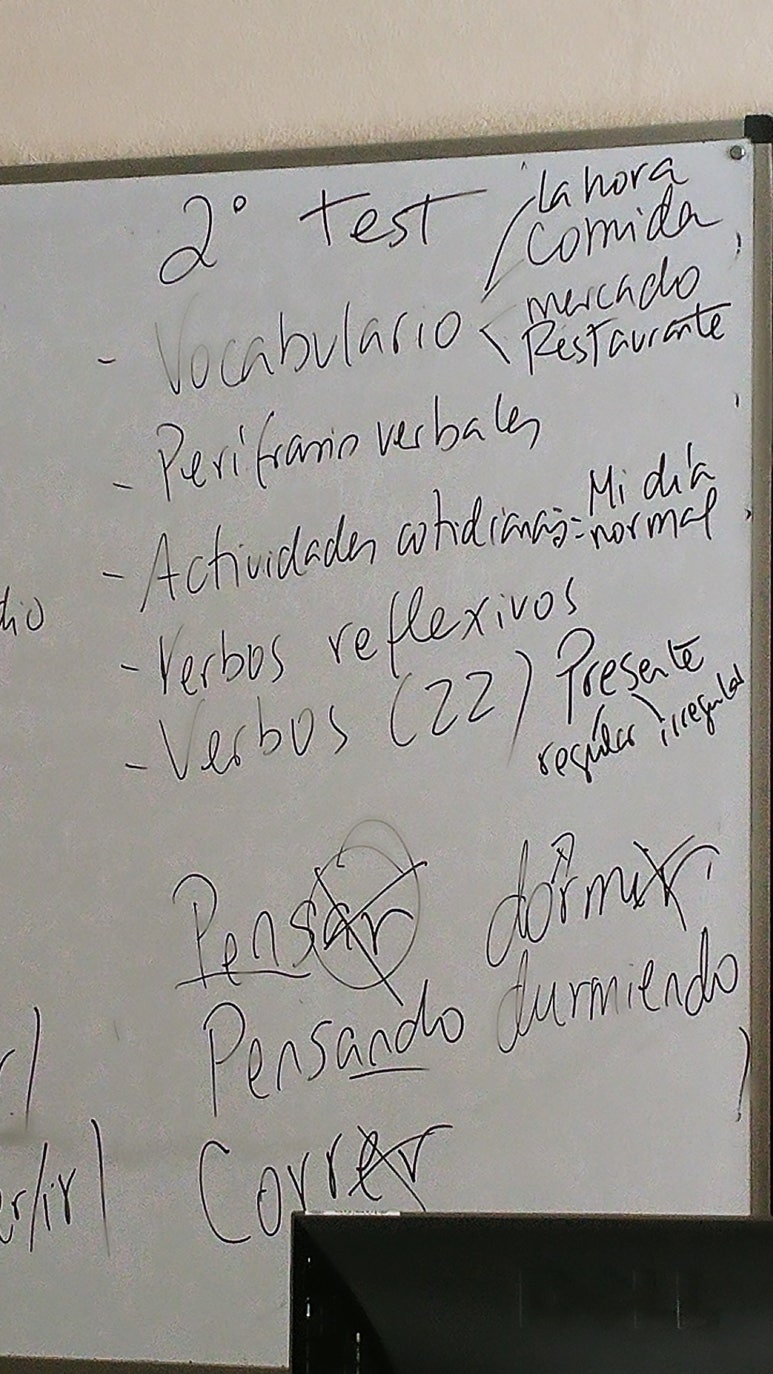 2° test
la hora
comida
- Vocabulario < mercado
Restaurante
- Perífrasis verbales
- Actividades cotidianas = Mi día normal
- Verbos reflexivos
- Verbos (22) Presente
regular irregular
Pensar dormir
Pensando durmiendo
er/ir
Correr